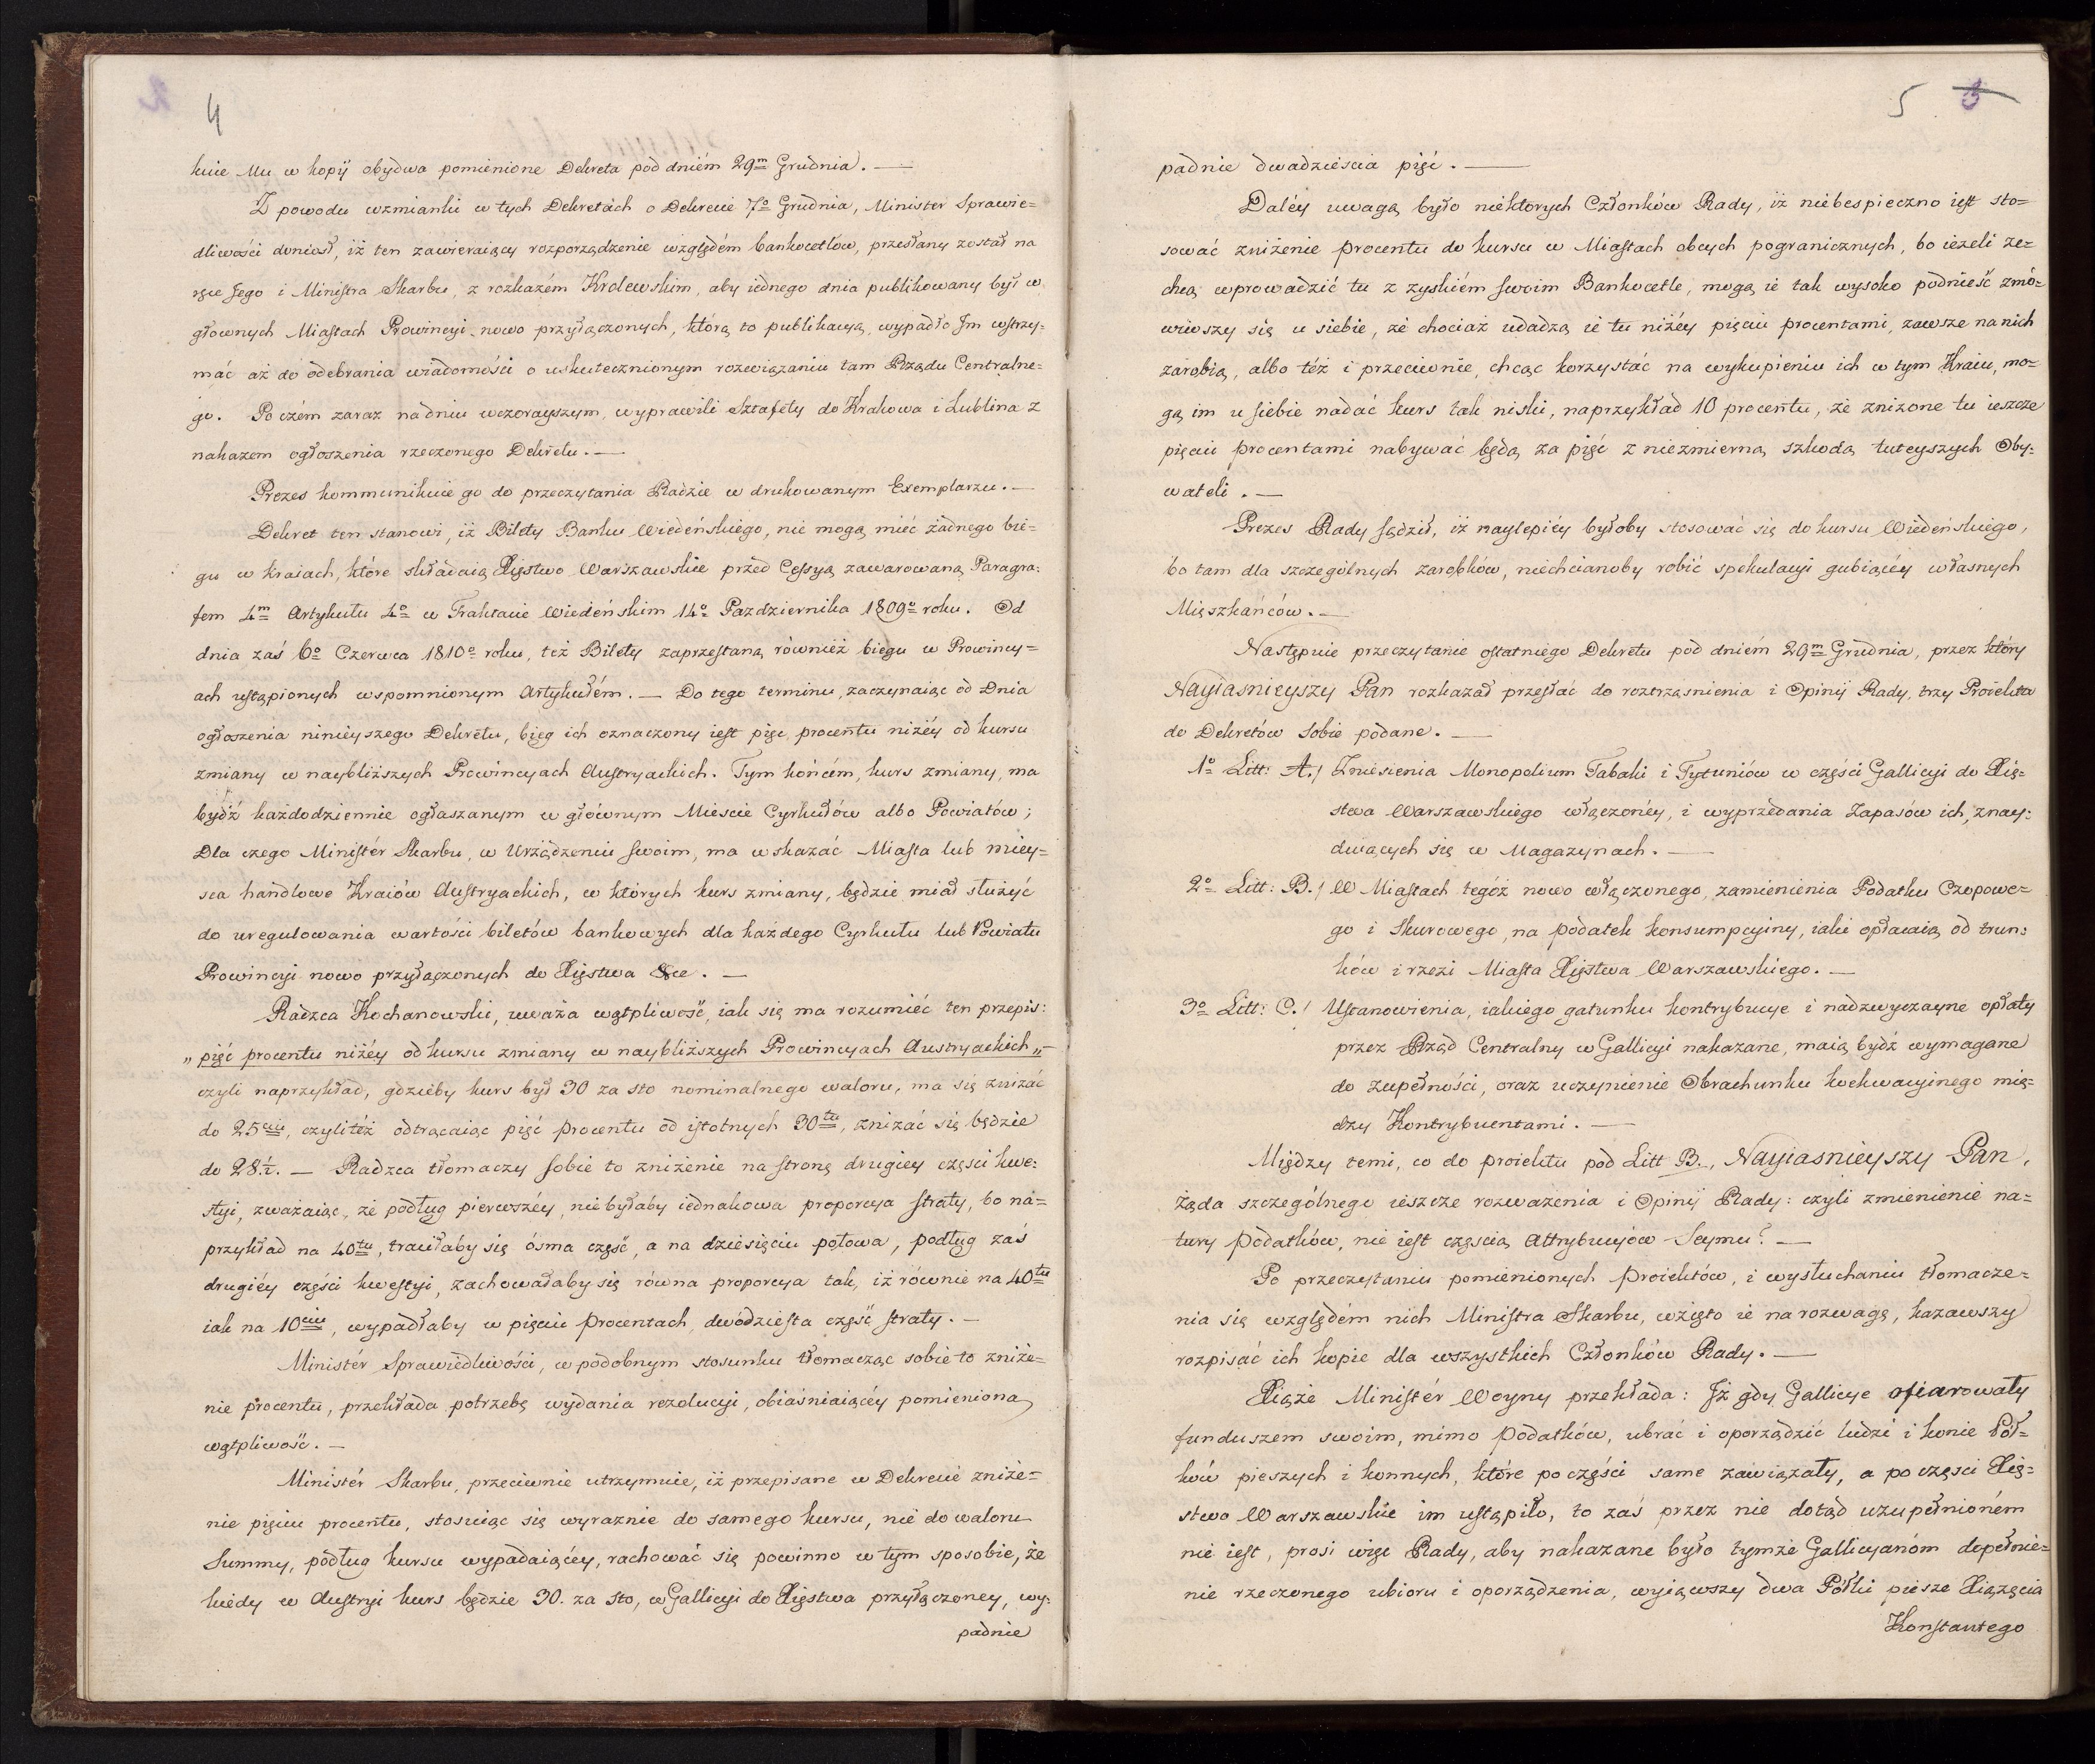 4
kuie Mu w kopij obydwa pomienione Dekreta pod dniem 29m Grudnia. —
Z powodu wzmianki w tych Dekretach o Dekrecie 7o Grudnia, Minister Sprawie=
dliwości doniosł, iż ten zawieraiący rozporządzenie względem bankocetlow, przesłany został na
ręce Jego i Ministra Skarbu, z rozkazem Krolewskim, aby iednego dnia publikowany był w
głownych Miastach Prowincyi nowo przyłączonych, którą to publikacyą, wypadło Im wstrzy=
mać aż do odebrania wiadomości o uskutecznionym rozwiązaniu tam Rządu Centralne=
go. Po czém zaraz na dniu wczorayszym, wyprawili Sztafety do Krakowa i Lublina z
nakazem ogłoszenia rzeczonego Dekretu. —
Prezes kommunikuie go do przeczytania Radzie w drukowanym Exemplarzu. —
Dekret ten stanowi, iż Bilety Banku Wiedeńskiego, nie mogą mieć żadnego bie=
gu w kraiach, które składaią Xięstwo Warszawskie przed Cessyą zawarowaną Paragra=
fem 4m Artykułu 4o w Traktacie Wiedeńskim 14o Pazdziernika 1809o roku. Od
dnia zaś 6o Czerwca 1810o roku, też Bilety zaprzestaną również biegu w Prowincy=
ach ustąpionych wspomnionym Artykułém. — Do tego terminu, zaczynaiąc od Dnia
ogłoszenia ninieyszego Dekretu, bieg ich oznaczony iest pięć procentu niżéy od kursu
zmiany w naybliższych Prowincyach Austryackich. Tym końcém, kurs zmiany, ma
bydź każdodziennie ogłaszanym w głównym Mieście Cyrkułów albo Powiatów;
Dla czego Ministér Skarbu, w Urządzeniu swoim, ma wskazać Miasta lub miey=
sca handlowe Kraiów Austryackich, w których kurs zmiany, będzie miał służyć
do uregulowania wartości biletów bankowych dla każdego Cyrkułu lub Powiatu
Prowincyi nowo przyłączonych do Xięstwa &ce. —
Radzca Kochanowski, uważa wątpliwość, iak się ma rozumieć ten przepis:
„pięć procentu niżéy od kursu zmiany w naybliższych Prowincyach Austryackich„ —
czyli naprzykład, gdzieby kurs był 30 za sto nominalnego waloru, ma się zniżać
do 25ciu, czyli téż odtrącaiąc pięć procentu od istotnych 30tu, zniżać się będzie
do 28.½. — Radzca tłomaczy sobie to zniżenie na stronę drugiey części kwe=
styi, zważaiąc, że podług pierwszéy, nie byłaby iednakowa proporcya straty, bo na=
przykład na 40tu, traciłaby się ósma część, a na dziesięciu połowa, podług zaś
drugiéy części kwestyi, zachowałaby się równa proporcya tak, iż równie na 40tu
iak na 10ciu, wypadłaby w pięciu procentach, dwódziesta część straty. —
Ministér Sprawiedliwości, w podobnym stosunku tłomacząc sobie to zniże=
nie procentu, przekłada potrzebę wydania rezolucyi, obiaśniaiącéy pomienioną
wątpliwość. —
Ministér Skarbu, przeciwnie utrzymuie, iż przepisane w Dekrecie zniże=
nie pięciu procentu, stosuiąc się wyraznie do samego kursu, nie do waloru
Summy, podług kursu wypadaiącéy, rachować się powinno w tym sposobie, że
kiedy w Austryi kurs będzie 30. za sto, w Gallicyi do Xięstwa przyłączoney, wy=
padnie
5 3
padnie dwadzieścia pięć. —
Daléy uwagą było niektórych Członków Rady, iż niebespieczno iest sto=
sować zniżenie procentu do kursu w Miastach obcych pogranicznych, bo ieżeli ze=
chcą wprowadzić tu z zyskiém swoim Bankocetle, mogą ie tak wysoko podnieść zmó=
wiwszy się u siebie, że chociaż udadzą ie tu niżéy pięciu procentami, zawsze na nich
zarobią, albo téż i przeciwnie, chcąc korzystać na wykupieniu ich w tym Kraiu, mo=
gą im u siebie nadać kurs tak niski, naprzykład 10 procentu, że zniżone tu ieszcze
pięciu procentami nabywać będą za pięć z niezmierną szkodą tuteyszych Oby=
wateli. —
Prezes Rady sądził, iż naylepiéy byłoby stosować się do kursu Wiedeńskiego,
bo tam dla szczególnych zarobków, niechcianoby robić spekulacyi gubiącéy własnych
Mieszkańców. —
Następuie przeczytanie ostatniego Dekretu pod dniém 29m Grudnia, przez który
Nayiasnieyszy Pan rozkazał przesłać do roztrząsnienia i Opinij Rady, trzy Proiekta
do Dekretów sobie podane. —
1o Litt: A./ Zniesienia Monopolium Tabaki i Tytuniów w części Gallicyi do Xię=
stwa Warszawskiego włączonéy, i wyprzedania Zapasów ich, znay=
duiących się w Magazynach. —
2o Litt: B./ W Miastach tegóż nowo włączonego, zamienienia Podatku Czopowe=
go i Skurowego, na podatek konsumpcyiny, iaki opłacaią od trun=
ków i rzezi Miasta Xięstwa Warszawskiego. —
3o Litt: C./ Ustanowienia, iakiego gatunku kontrybucye i nadzwyczayne opłaty
przez Rząd Centralny w Gallicyi nakazane, maią bydź wymagane
do zupełności, oraz uczynienie Obrachunku koekwacyinego mię=
dzy Kontrybuentami. —
Między temi, co do proiektu pod Litt B., Nayiasnieyszy Pan,
żąda szczególnego ieszcze rozważenia i Opinij Rady: czyli zmienienie na=
tury Podatków, nie iest częscią Attrybucyów Seymu? —
Po przeczytaniu pomienionych Proiektów, i wysłuchaniu tłomacze=
nia się względém nich Ministra Skarbu, wzięto ie na rozwagę, kazawszy
rozpisać ich kopie dla wszystkich Członków Rady. —
Xiąże Ministér Woyny przekłada: Iż gdy Gallicye ofiarowały
funduszem swoim, mimo podatków, ubrać i oporządzić ludzi i konie Pół=
ków pieszych i konnych, które po części same zawiązały, a po części Xię=
stwo Warszawskie im ustąpiło, to zaś przez nie dotąd uzupełnioném
nie iest, prosi więc Rady, aby nakazane było tymże Gallicyanóm dopełnie=
nie rzeczonego ubioru i oporządzenia, wyiąwszy dwa Półki piesze Xiążęcia
Konstantego